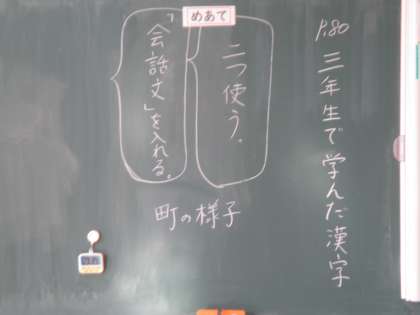 P.80
三年生で学んだ漢字
めあて
二つ使う.
「会話文」を入れる。
町の様子